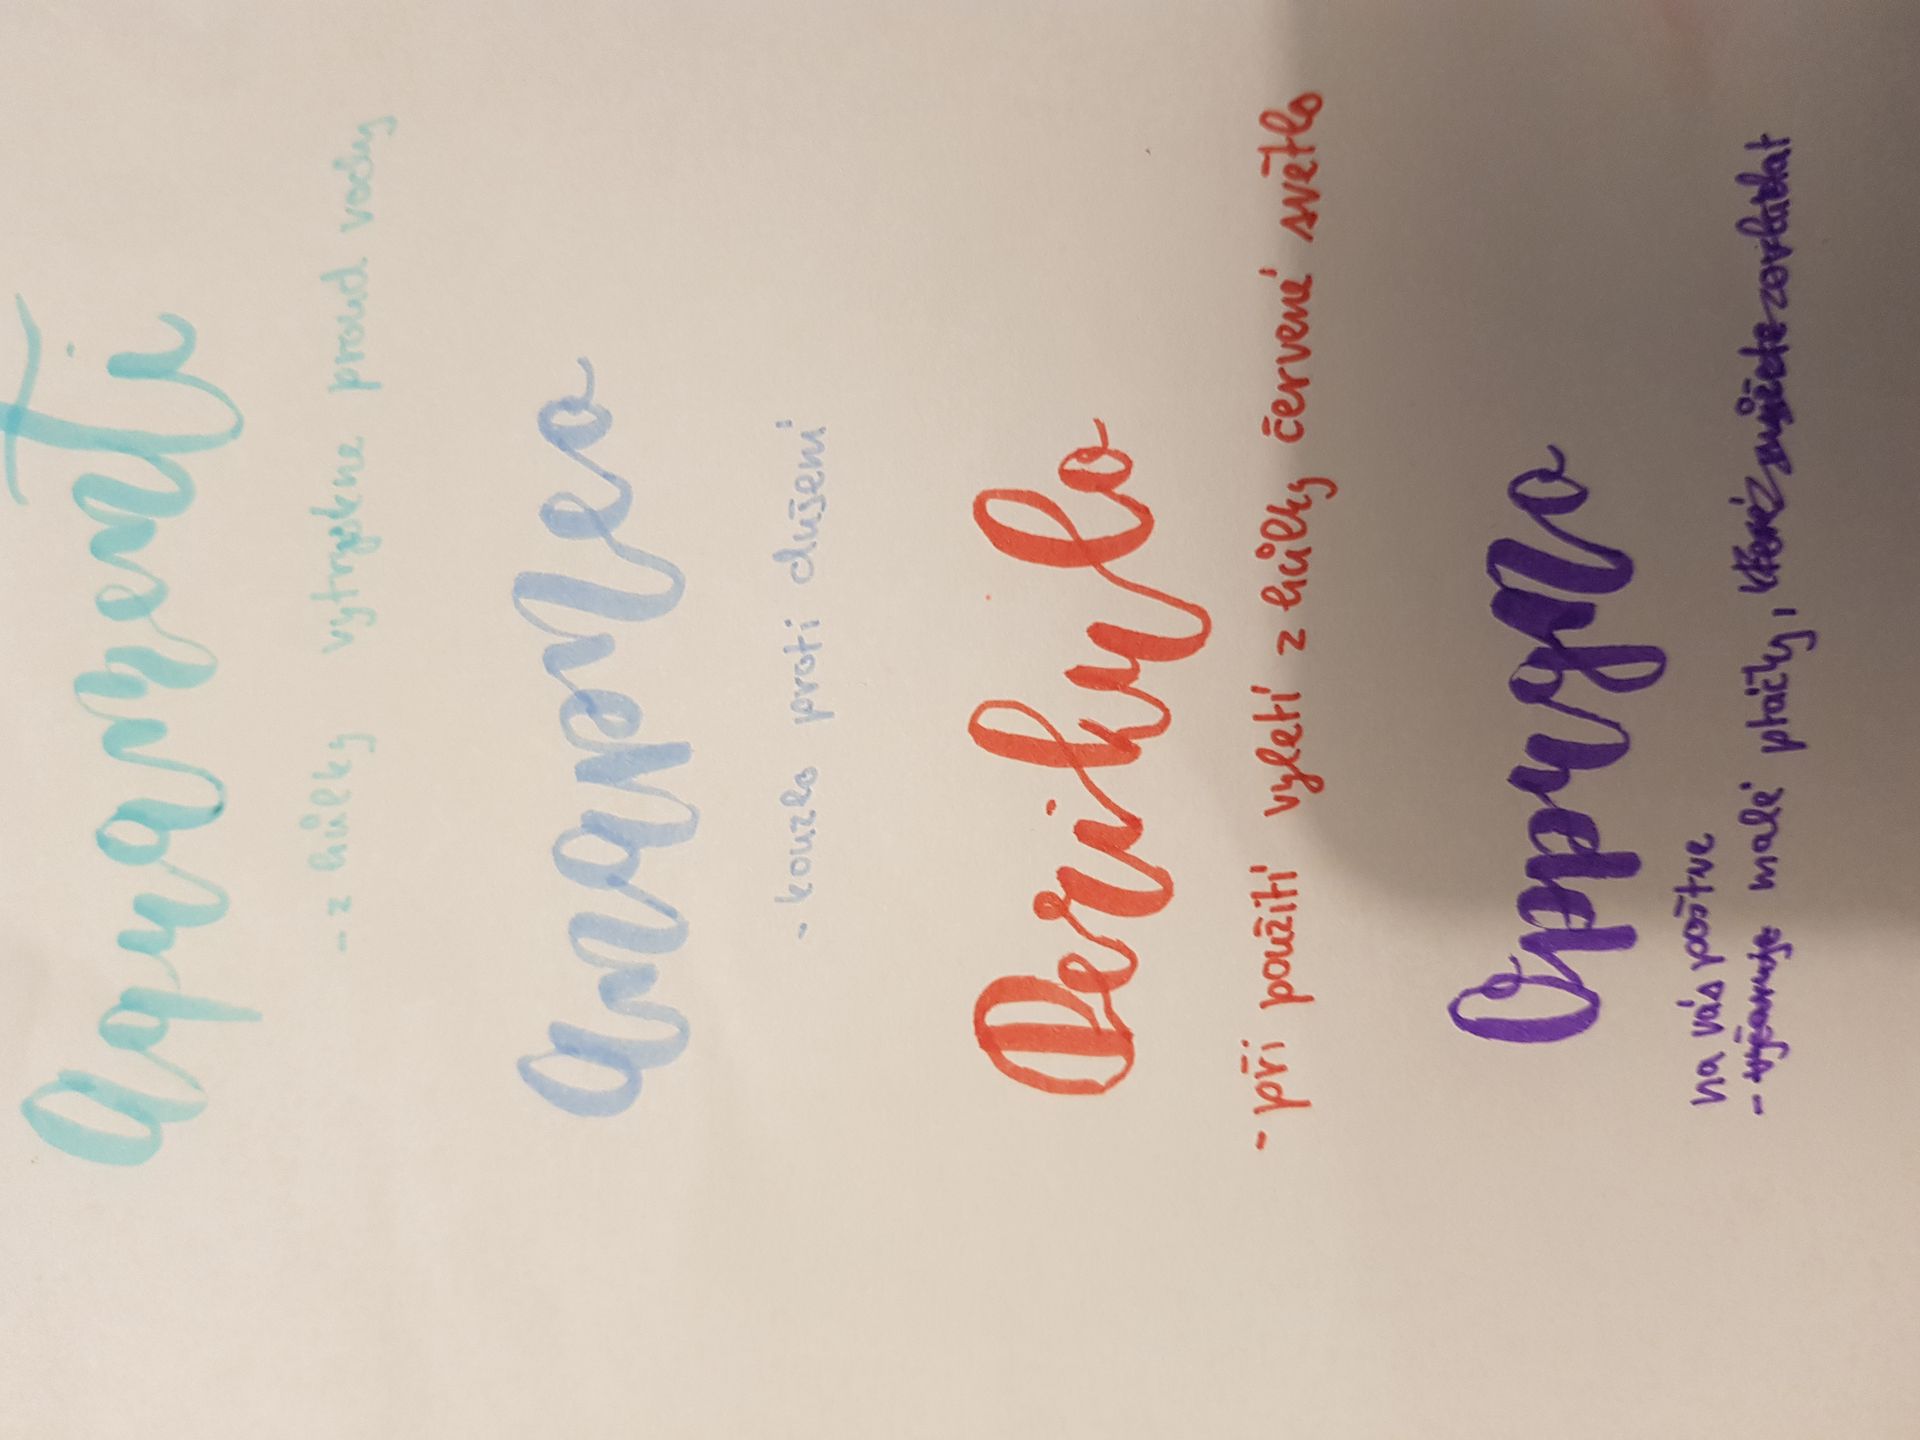 Aquamenti
- z hůlky vytryskne proud vody
Anapneo
- kouzlo proti dušení
Perikulo
- při použití vyletí z hůlky červené světlo
Oppugno
na vás poštve
- vyčaruje malé ptáčky, které můžete zovládat